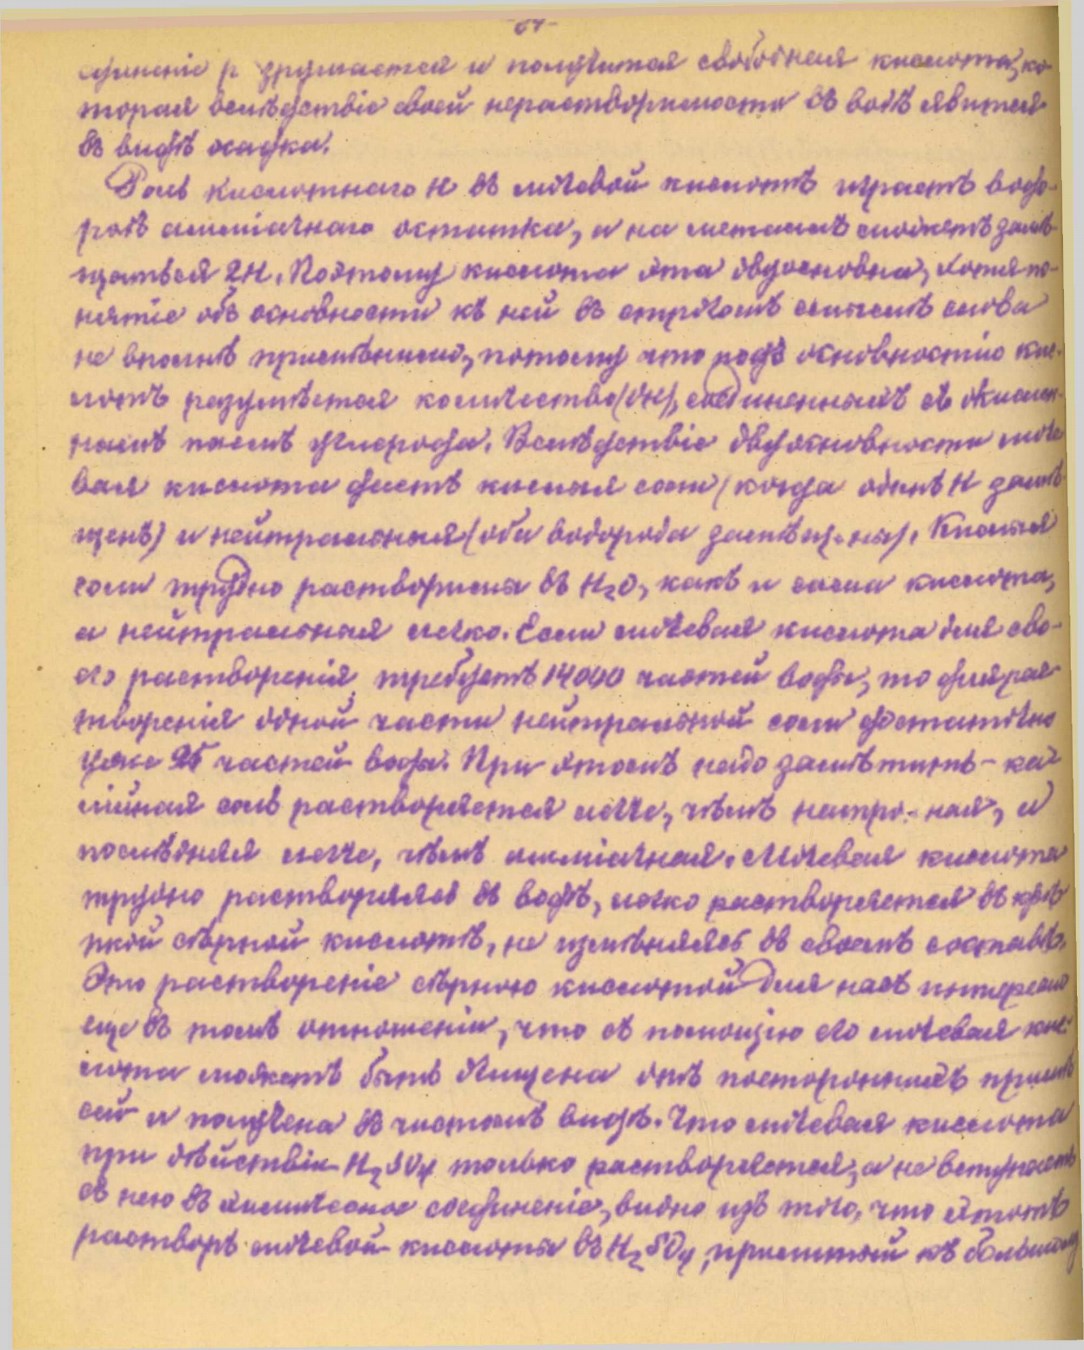 -64-
единеніе разрушается и получится свободная кислота, ко-
торая вслѣдствіе своей нерастворимости въ водѣ явится
въ видѣ осадка.
Роль кислотнаго Н въ мочевой кислотѣ играетъ водо-
родъ амміачнаго остатка, и на металлъ можетъ замѣ-
щаться 2Н. Поэтому кислота эта двуосновна, хотя по-
нятіе объ основности къ ней въ строгомъ смыслѣ слова
не вполнѣ примѣнимо, потому что подъ основностію кис-
лотъ разумѣется количество (ОН), соединенныхъ съ окислен-
нымъ паемъ углерода. Вслѣдствіе двуосновности моче
вая кислота даетъ кислыя соли (когда одинъ Н замѣ-
щенъ) и нейтральныя (оба водорода замѣщены). Кислыя
соли трудно растворимы въ H₂O, какъ и сама кислота,
а нейтральныя легко. Если мочевая кислота для сво-
его растворенія требуетъ 14000 частей воды, то для рас-
творенія одной части нейтральной соли достаточно
уже 35 частей воды. При этомъ надо замѣтить - ка-
лійная соль растворяется легче, чѣмъ натронная, и
послѣдняя легче, чѣмъ амміачная. Мочевая кислота
трудно растворяясь въ водѣ, легко растворяется въ крѣ
пкой сѣрной кислотѣ, не измѣняясь въ своемъ составѣ.
Это раствореніе сѣрною кислотой для насъ интересно
еще въ томъ отношеніи, что съ помощію его мочевая кис-
лота можетъ быть очищена отъ постороннихъ примѣ
сей и получена въ чистомъ видѣ. Что мочевая кислота
при дѣйствіи H₂SO₄ только растворяется, а не вступаетъ
съ нею въ химическое соединеніе, видно изъ того, что этотъ
растворъ мочевой кислоты въ H₂SO₄, прилитый къ большому